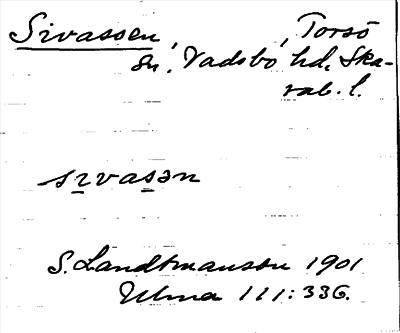 Sivassen, , Torsö
sn. Vadsbo hd, Ska-
rab. l.
sɪvasən
S. Landtmanson 1901
Ulma 111:336.